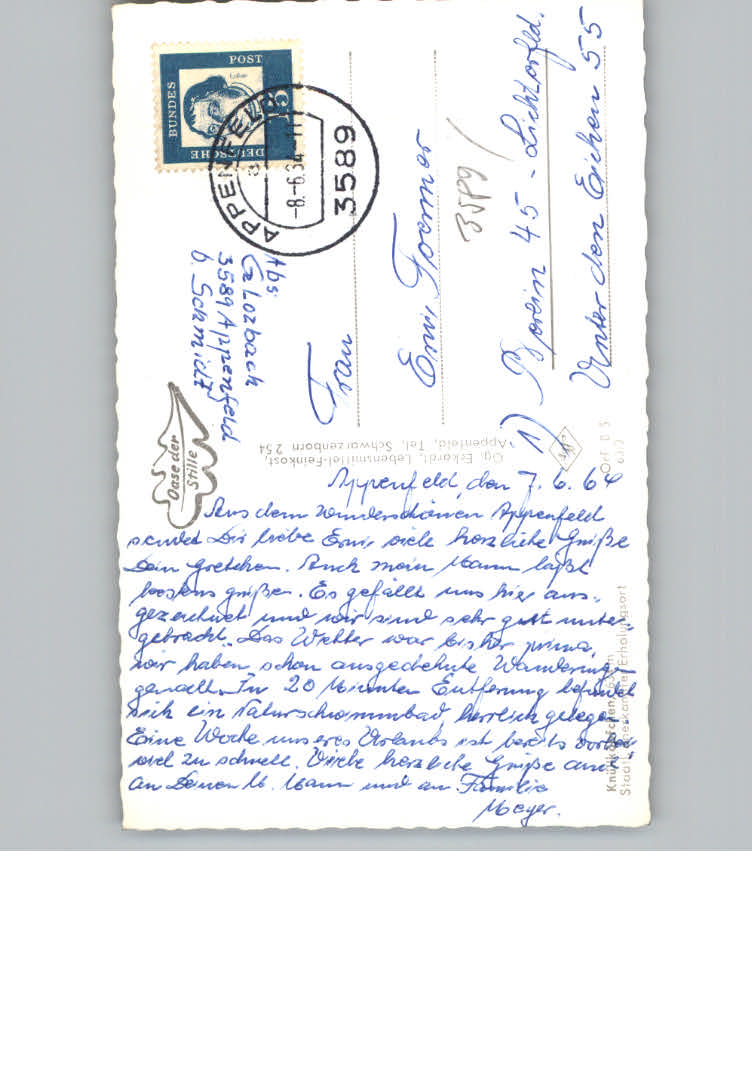 DEUTSCHE
BUNDES
POST
Luther
15
APPENFELD
a
-8.-6.64-11
3589
Abs:
3589 Appenfeld
b. Schmidt
Frau
Erni Foermer
3589
1) Berlin 45 - Lichterfeld.
Unter den Eichen 55
Oase der
Stille
Gg. Eckardt, Lebensmittel-Feinkost,
Appenfeld, Tel. Schwarzenborn 254
Knüllköpfchen
Staatl. anerkannter Erholungsort
Appenfeld, den 7.6.64
Aus dem wunderschönen Appenfeld
sendet Dir liebe Erni viele herzliche Grüße
Dein Gretchen. Auch mein Mann läßt
bestens grüßen. Es gefällt uns hier aus-
gezeichnet und wir sind sehr gut unter-
gebracht. Das Wetter war bisher prima,
wir haben schon ausgedehnte Wanderungen
gemacht. In 20 Minuten Entfernung befindet
sich ein Naturschwimmbad, herrlich gelegen.
Eine Woche unseres Urlaubs ist bereits vorbei
viel zu schnell. Viele herzliche Grüße auch
an Deinen lb. Mann und an Familie
Meyer.